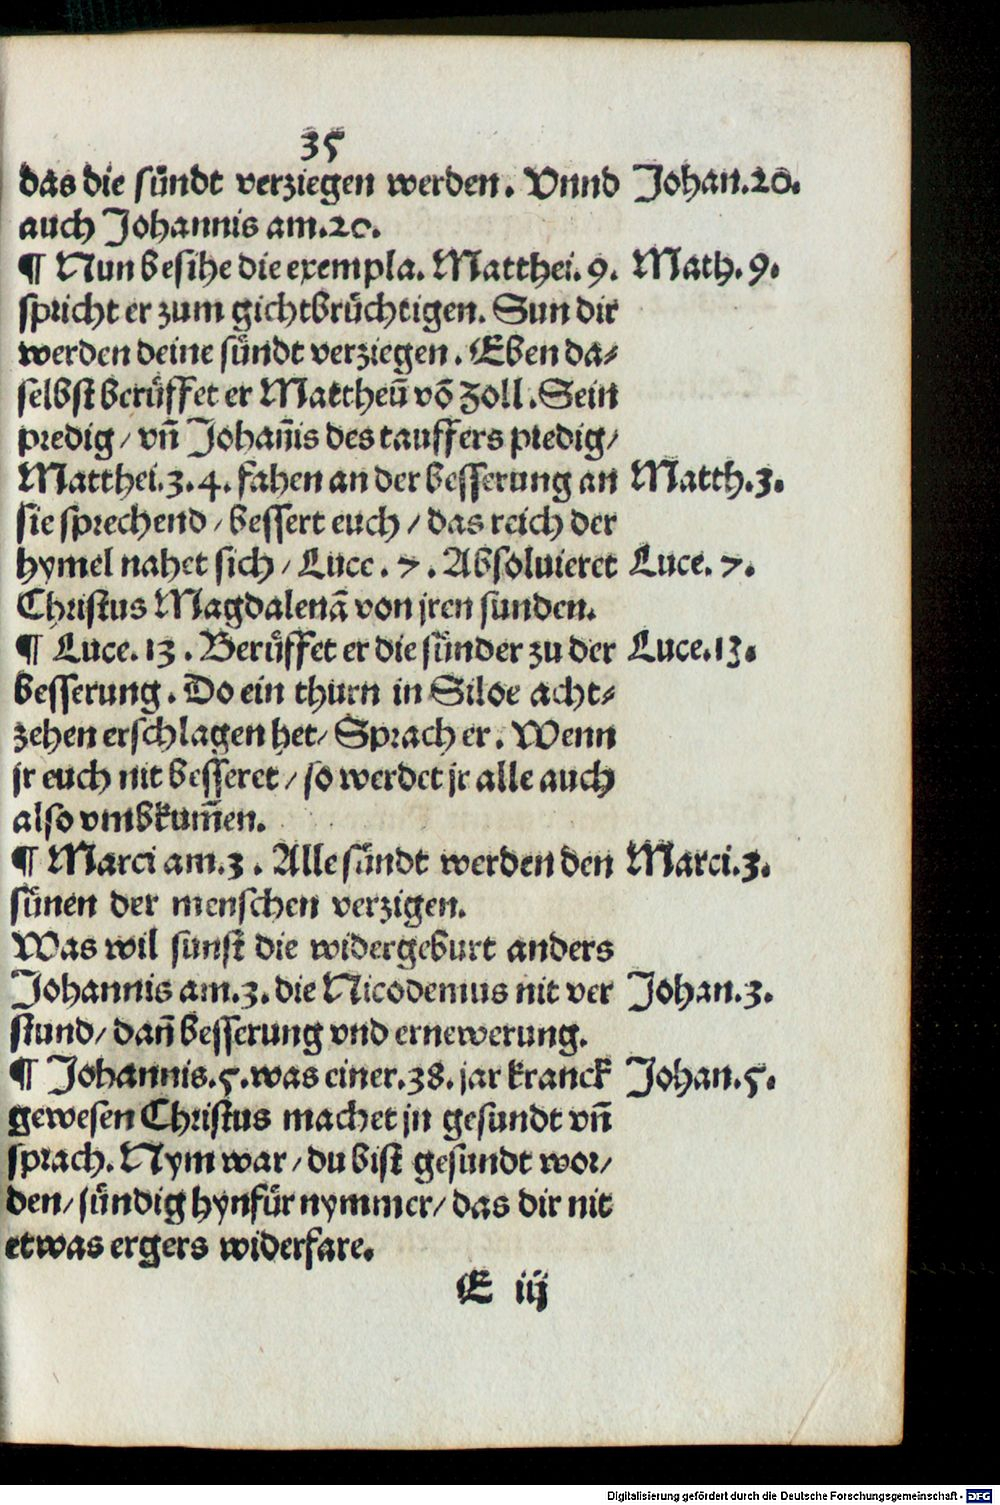 35
das die sündt verziegen werden. Vnnd Johan.20.
auch Johannis am.20.
¶ Nun besihe die exempla. Matthei. 9. Math. 9.
spricht er zum gichtbrüchtigen. Sun dir
werden deine sündt verziegen. Eben da⸗
selbst berüffet er Mattheū võ Zoll. Sein
predig/ vñ Johañis des tauffers predig/
Matthei.3.4. fahen an der besserung an Matth.3.
sie sprechend/ bessert euch/ das reich der
hymel nahet sich/ Luce. 7. Absoluieret Luce. 7.
Christus Magdalenā von jren sunden.
¶ Luce. 13. Berüffet er die sünder zu der Luce.13.
besserung. Do ein thurn in Siloe acht⸗
zehen erschlagen het/ Sprach er. Wenn
jr euch nit besseret/ so werdet jr alle auch
also vmbkum̄en.
¶ Marci am.3. Alle sündt werden den Marci.3.
sünen der menschen verzigen.
Was wil sunst die widergeburt anders
Johannis am.3. die Nicodemus nit ver Johan.3.
stund/ dañ besserung vnd ernewerung.
¶ Johannis.5. was einer.38. jar kranck Johan.5.
gewesen Christus machet jn gesundt vñ
sprach. Nym war/ du bist gesundt wor/
den/ sündig hynfür nymmer/ das dir nit
etwas ergers widerfare.
E iij
Digitalisierung gefördert durch die Deutsche Forschungsgemeinschaft - DFG